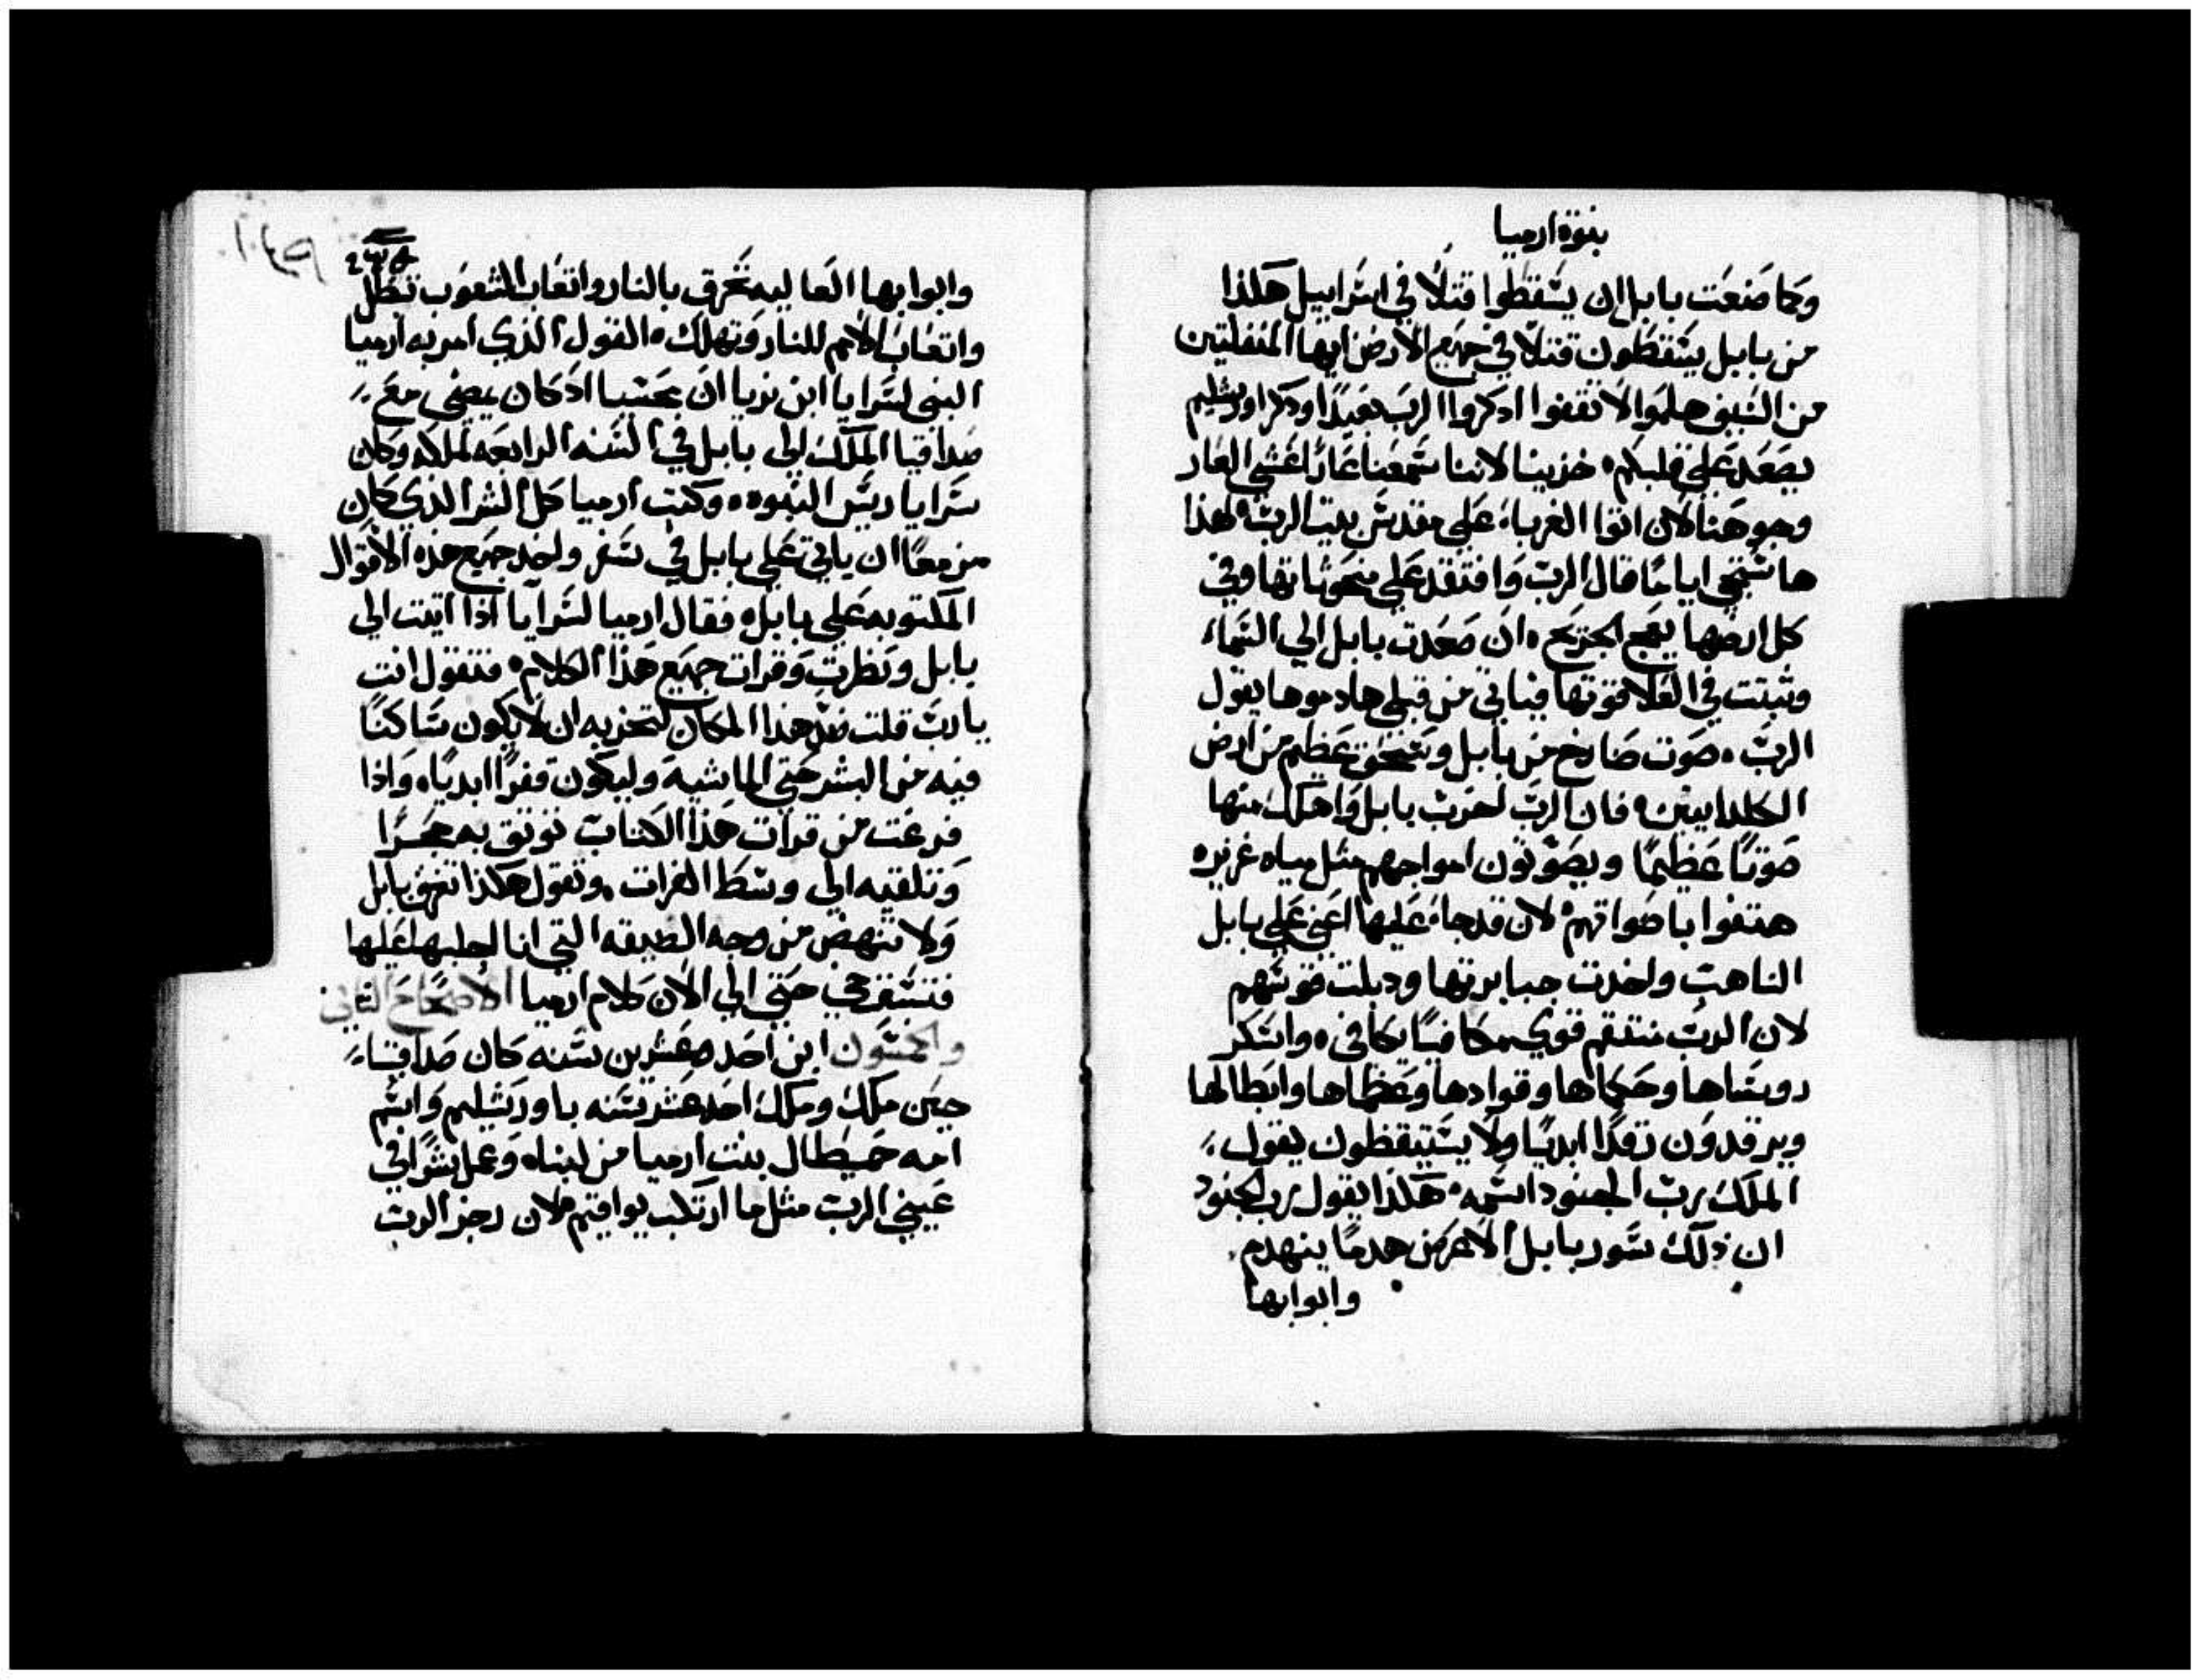 نبوة ارميا
وكما صنعت بابل ان يسقطوا قتلاً في اسراييل هكذا
من بابل يسقطون قتلاً في جميع الارض ايها المنفلتين
من السيف هلموا لا تقفوا اذكروا الرب بعيداً وذكر اورشليم
يصعد علي قلبكم خزينا لاننا سمعنا عاراً غشي العار
وجوهنا لان اتوا الغرباء علي مقدس بيت الرب لهذا
ها ستجي اياماً قال الرب وافتقد علي منحوثاتها وفي
كل ارضها يعج الجريح ان صعدت بابل الي السماء
وثبتت في العلا قوتها فياتي من قبلي هادموها يقول
الرب صوت صارخ من بابل وسحق عظيم من ارض
الكلدانيين فان الرب اخرب بابل واهلك منها
صوتاً عظيماً ويصوتون امواجهم مثل مياه غزيره
هتفوا باصواتهم لان قد جاء عليها اعني علي بابل
الناهب واخذت جبابرتها وذبلت قوتهم
لان الرب منتقم قوي مكافياً يكافي واسكر
روساها وحكماها وقوادها وعظماها وابطالها
ويرقدون رقداً ابدياً ولا يستيقظون يقول
الملك رب الجنود اسمه هكذا يقول رب الجنود
ان ذلك سور بابل الاعرض هدماً ينهدم
وابوابها
وابوابها العاليه تحرق بالنار واتعاب الشعوب تبطل
واتعاب الامم للنار وتهلك القول الذي امر به ارميا
النبي لسرايا ابن نريا ان محسيا اذ كان يمضي مع
صداقيا الملك الي بابل في السنه الرابعه لملكه وكان
سرايا ريس النبوه وكتب ارميا كل الشر الذي كان
مزمعاً ان ياتي علي بابل في سفر واخذ جميع هذه الاقوال
المكتوبه علي بابل فقال ارميا لسرايا اذا اتيت الي
بابل ونظرت وقرات جميع هذا الكلام فتقول انت
يارب قلت ضد هذا المكان لتخزيه ان لا يكون ساكناً
فيه من البشر حتي الماشيه وليكون قفراً ابدياً واذا
فرغت من قرات هذا الكتاب توثق به حجراً
وتلقيه الي وسط الفرات وتقول هكذا تغرق بابل
ولا تنهض من وجه الضيقه التي انا اجلبها عليها
فتستقرحي حتي الي الان كلام ارميا الاصحاح الثاني
والخمسون ابن احد وعشرين سنه كان صداقياء
حين ملك وملك احد عشر سنه باورشليم واسم
امه حميطال بنت ارميا من لبناه وعمل شراً في
عيني الرب مثل ما ارتكب يواقيم لان رجز الرب